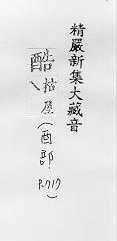 精嚴新集大藏音
酷
酷枯屋(酉部.
P.717)